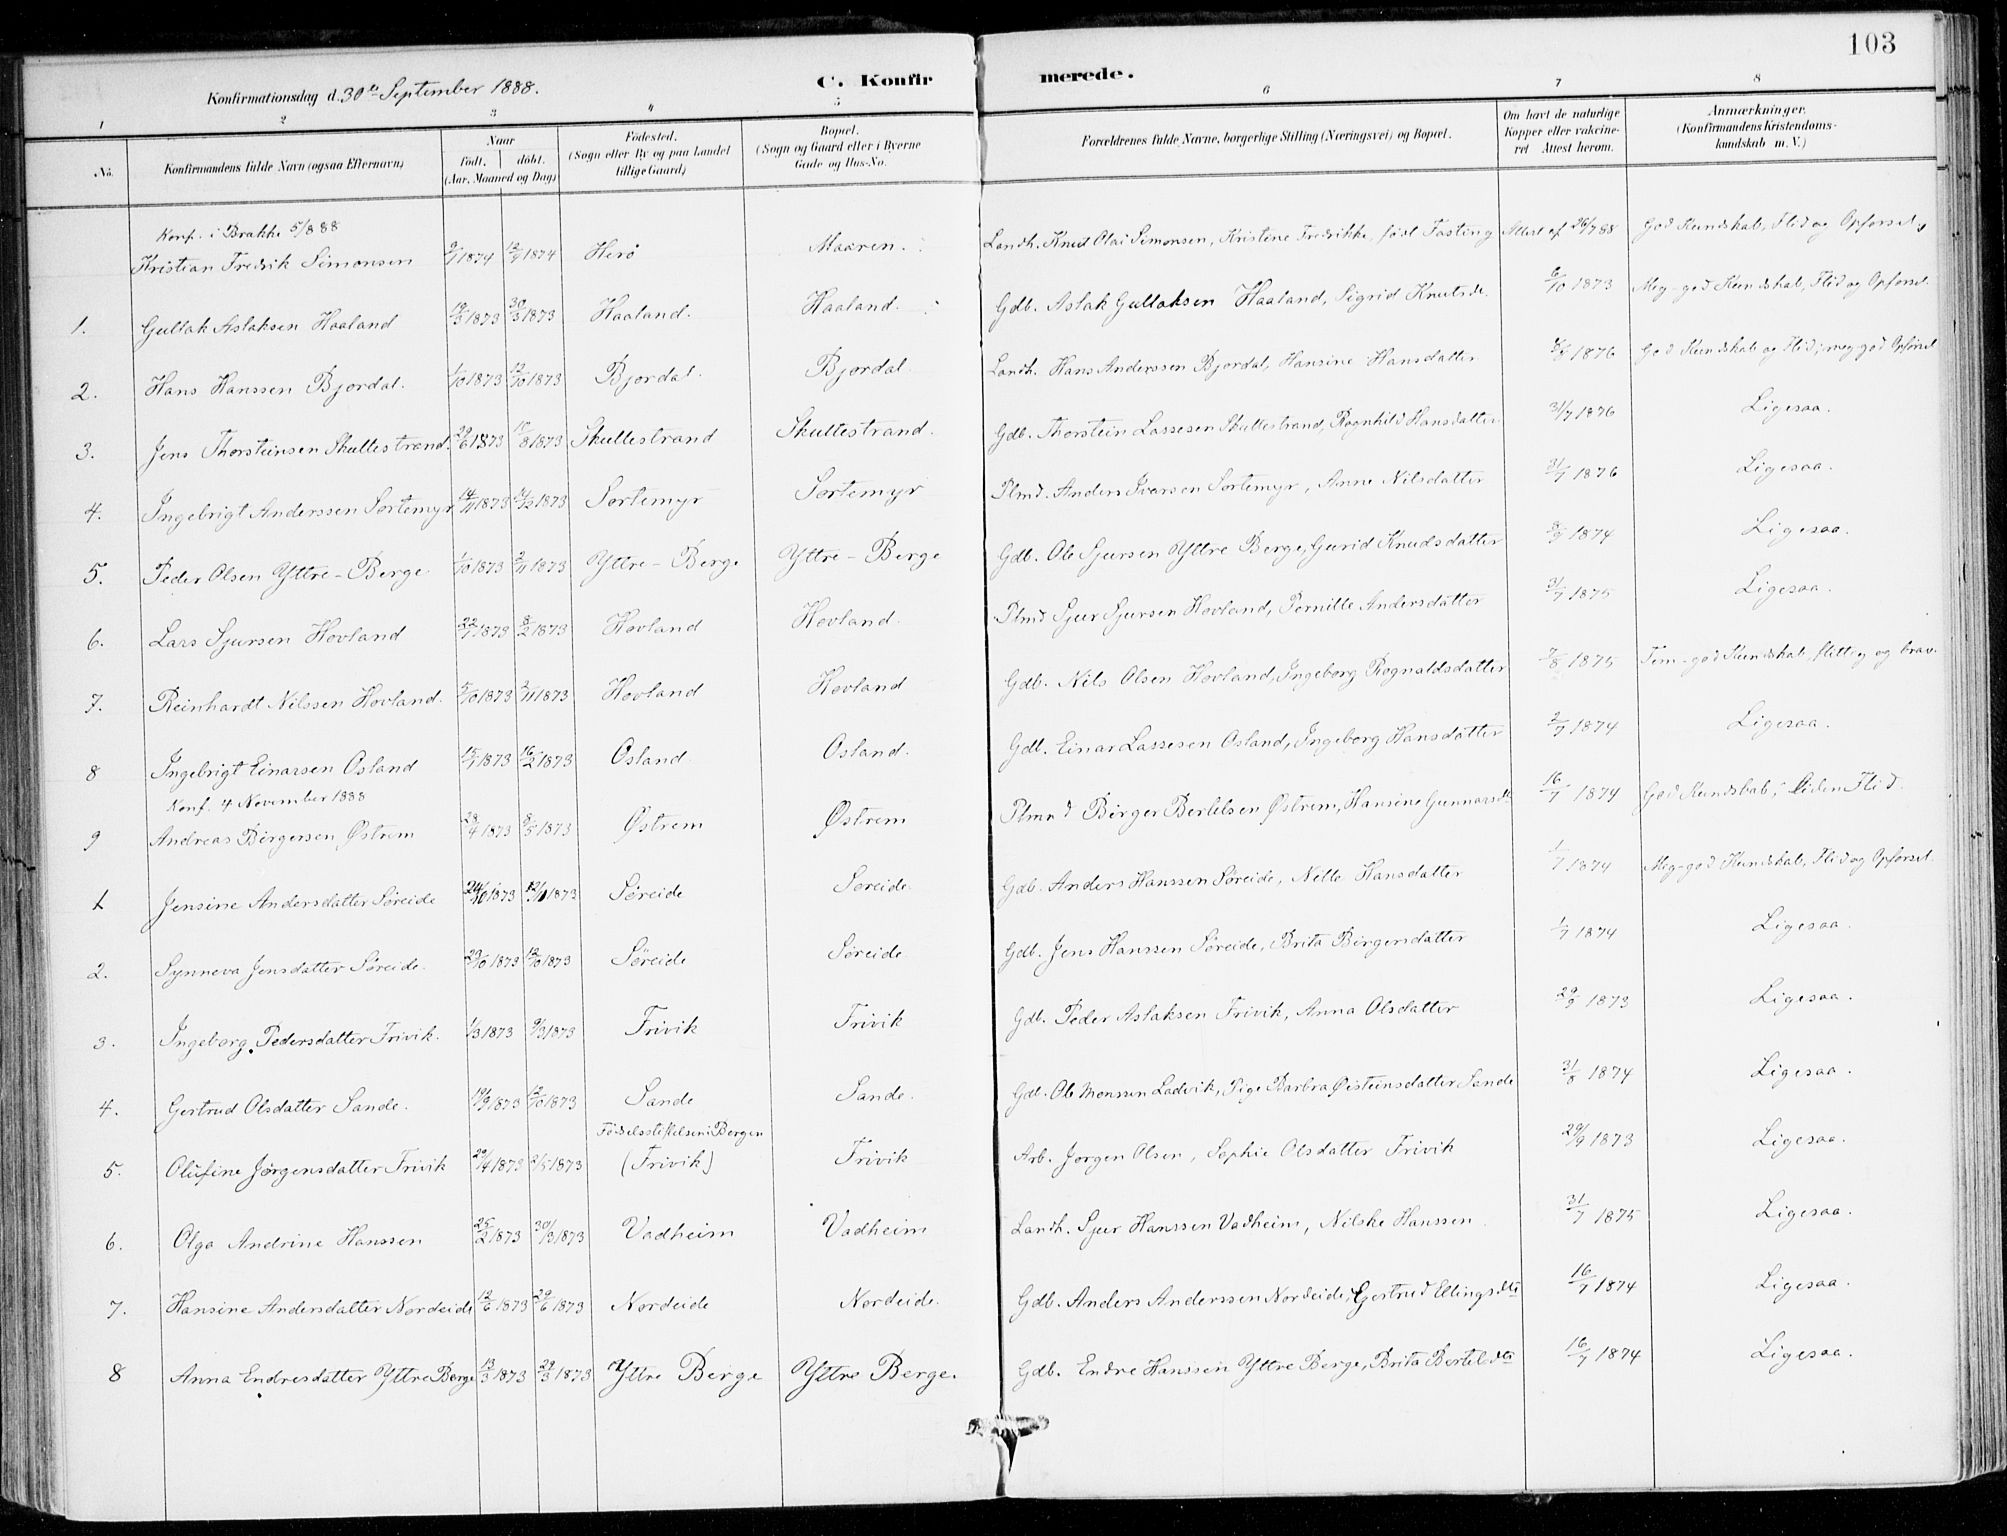 103
C. Konfirmerede.
Konfirmationsdag d. 30te September 1888.
1 2 3 4 5 6 7 8
No. Konfirmandens fulde Navn (ogsaa Efternavn) Naar født. døbt. (Aar, Maaned og Dag) Fødested. (Sogn eller By og paa Landet tillige Gaard) Bopæl. (Sogn og Gaard eller i Byerne Gade og Hus-No. Forældrenes fulde Navne, borgerlige Stilling (Næringsvei) og Bopæl. Om havt de naturlige Kopper eller vakcineret Attest herom. Anmærkninger. (Konfirmandens Kristendomskundskab m. V.)
Konf. i Brakke 5/8 88
Kristian Fredrik Simonsen 1874 1874 Herø Maaren. Landh. Knud Olai Simonsen, Kristine Fredrikke, født Fasting Attest af 26/7 88 God Kundskab, Flid og Opførsel,
1. Gullak Aslaksen Haaland 19/3 1873 30/3 1873 Haaland. Haaland. Gdb. Aslak Gullaksen Haaland, Sigrid Knutsdr. 6/10 1873 Meg-god Kundskab, Flid og Opførsel.
2. Hans Hanssen Bjordal. 1/10 1873 12/10 1873 Bjordal. Bjordal. Landh. Hans Anderssen Bjordal, Hansine Hansdatter 1876 God Kundskab og Flid; meg-god Opførsel
3. Jens Thorsteinsen Skullestrand. 29/6 1873 17/8 1873 Skullestrand Skullestrand. Gdb. Thorstein Lassesen Skullestrand, Ragnhild Hansdatter 31/7 1876 Ligesaa.
4. Ingebrigt Anderssen Sortemyr 14/11 1873 1873 Sortemyr Sortemyr Plmd. Anders Iversen Sortemyr, Anne Nilsdatter 31/7 1876 Ligesaa.
5. Peder Olsen Yttre-Berge 1/10 1873 2/11 1873 Yttre-Berge Yttre-Berge Gdb. Ole Sjursen Yttre Berge, Gurid Knudsdatter 1874 Ligesaa.
6. Lars Sjursen Hovland 22/1 1873 8/2 1873 Hovland Hovland. Plmd Sjur Sjursen Hovland, Pernille Andersdatter 31/7 1875 Ligesaa.
7. Reinhardt Nilssen Hovland. 5/10 1873 2/11 1873 Hovland Hovland Gdb. Nils Olsen Hovland, Ingeborg Rognaldsdatter 7/8 1875 Tem-god Kundskab, flittig og brav.
8 Ingebrigt Einarsen Osland 15/1 1873 16/2 1873 Osland. Osland. Gdb. Einar Lassesen Osland, Ingeborg Hansdatter 2/7 1874 Ligesaa.
Konf. 4 November 1888
9 Andreas Børgersen Østrem 28/4 1873 8/5 1873 Østrem Østrem Plmnd Børger Bertelsen Østrem, Hansine Gunnarsdr 16/7 1874 God Kundskab; Liden Flid.
1 Jensine Andersdatter Søreide 24/10 1873 1873 Søreide Søreide. Gdb. Anders Hanssen Søreide, Nille Hansdatter 1/7 1874 Meg-god Kundskab, Flid og Opførsel.
2. Synneva Jensdatter Søreide. 1873 1873 Søreide Søreide Gdb. Jens Hanssen Søreide, Brita Børgersdatter 1/7 1874 Ligesaa.
3. Ingeborg Pedersdatter Trivik. 1/3 1873 9/3 1873 Trivik Trivik Gdb. Peder Aslaksen Trivik, Anna Olsdatter 29/9 1873 Ligesaa.
4. Gertrud Olsdatter Sande. 19/9 1873 12/10 1873 Sande Sande. Gdb. Ole Monssen Ladvik, Pige Barbra Øisteinsdatter Sande 31/8 1874 Ligesaa.
Fødselsstiftelsen i Bergen
5. Olufine Jørgensdatter Trivik 29/4 1873 /5 1873 (Trivik) Trivik Arb. Jørgen Olsen, Sophie Olsdatter Trivik 29/9 1873 Ligesaa.
6. Olga Andrine Hanssen 25/2 1873 30/3 1873 Vadheim Vadheim Landh. Sjur Hanssen Vadheim, Nilske Hanssen 31/7 1875 Ligesaa.
7. Hansine Andersdatter Nordeide 12/6 1873 29/6 1873 Nordeide Nordeide. Gdb. Anders Anderssen Nordeide, Gertrud Ellingsdtr 16/7 1874 Ligesaa.
8 Anna Endresdatter Yttre Berge 13/3 1873 29/3 1873 Yttre Berge Yttre Berge. Gdb. Endre Hanssen Yttre Berge, Brita Bertelsdtr 16/7 1874 Ligesaa.